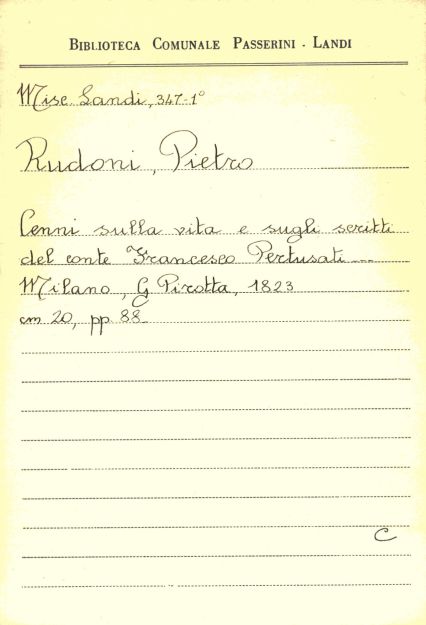 BIBLIOTECA COMUNALE PASSERINI - LANDI
Misc. Landi, 347-1°
Rudoni, Pietro
Cenni sulla vita e sugli scritti
del conte Francesco Pertusati ...
Milano, G. Pirotta, 1823
cm 20, pp 88
C